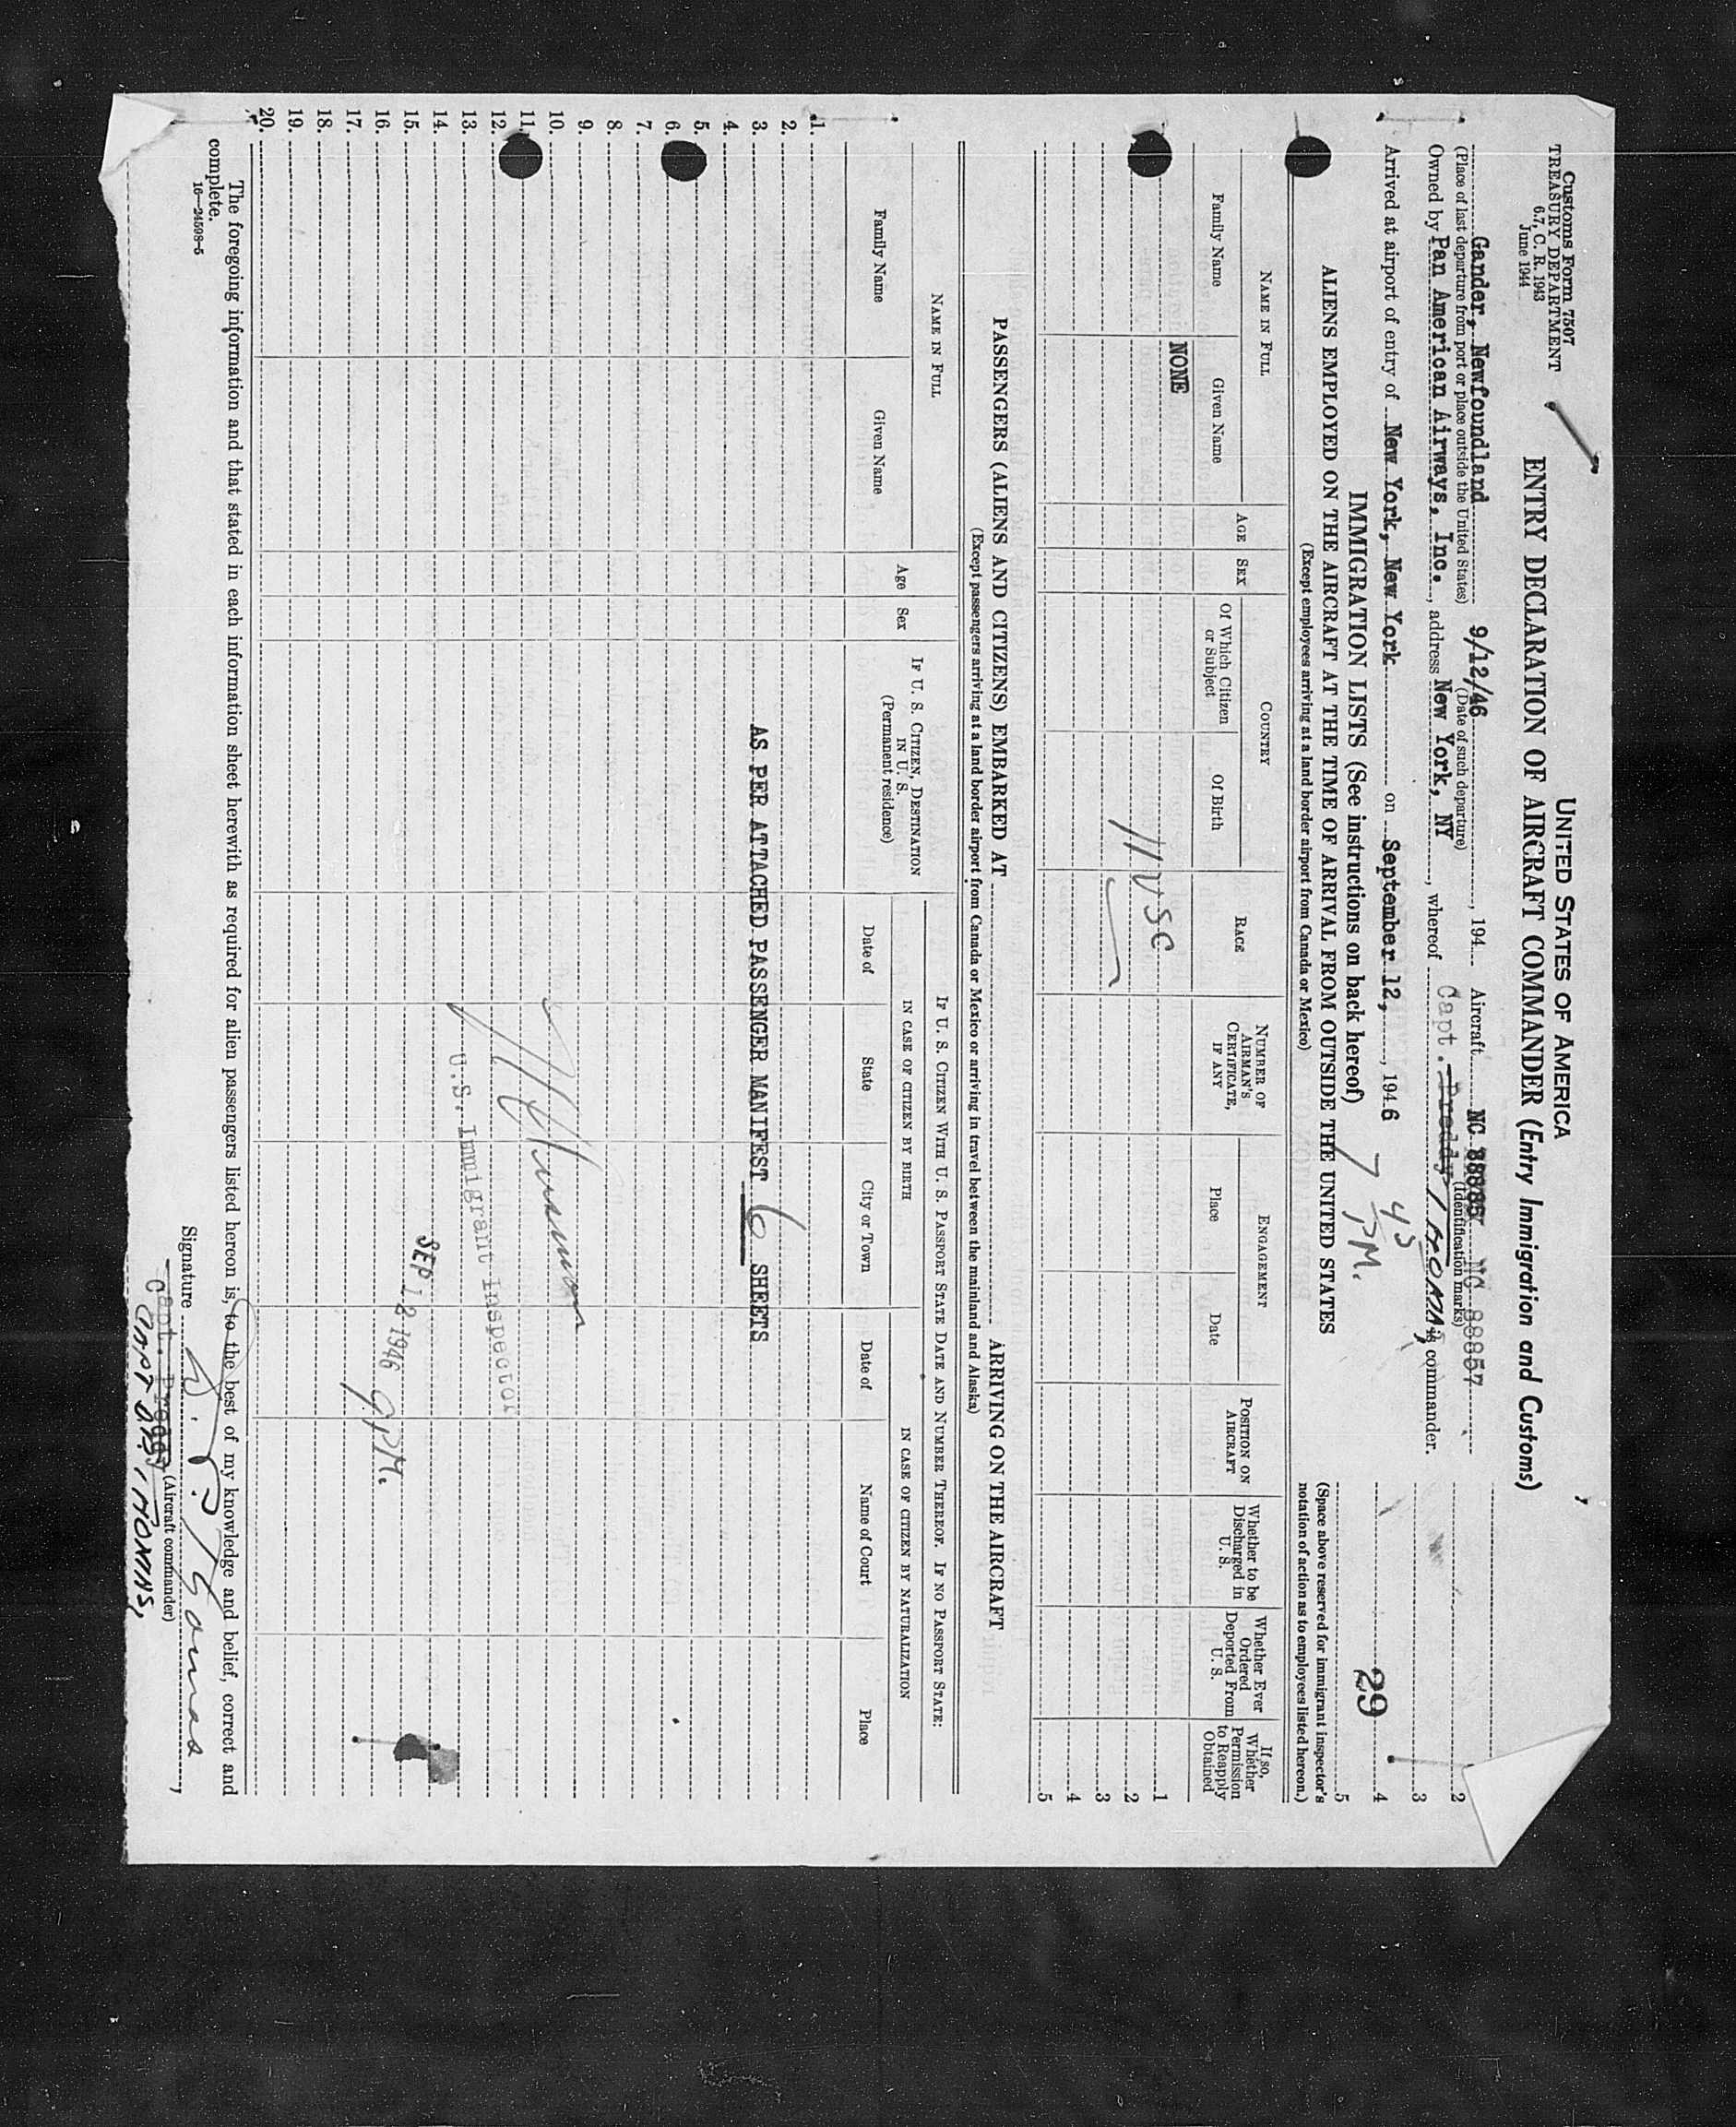 Customs Form 7507
TREASURY DEPARTMENT
6.7, C. R. 1943
June 1944
UNITED STATES OF AMERICA
ENTRY DECLARATION OF AIRCRAFT COMMANDER (Entry Immigration and Customs)
Gander, Newfoundland 9/12/46, 194 Aircraft NC 88857
(Place of last departure from port or place outside the United States) (Date of such departure) (Identification marks)
Owned by Pan American Airways, Inc., address New York, NY, whereof Capt. Preddy commander.
Arrived at airport of entry of New York, New York on September 12, 1946 7 45 PM.
2
3
4
5
29
(Space above reserved for immigrant inspector's notation of action as to employees listed hereon.)
IMMIGRATION LISTS (See instructions on back hereof)
ALIENS EMPLOYED ON THE AIRCRAFT AT THE TIME OF ARRIVAL FROM OUTSIDE THE UNITED STATES
(Except employees arriving at a land border airport from Canada or Mexico)
NAME IN FULL
Family Name
Given Name
AGE
SEX
COUNTRY
Of Which Citizen or Subject
Of Birth
RACE
NUMBER OF AIRMAN'S CERTIFICATE, IF ANY
ENGAGEMENT
Place
Date
POSITION ON AIRCRAFT
Whether to be Discharged in U. S.
Whether Ever Ordered Deported From U. S.
If so, Whether Permission to Reapply Obtained
NONE
11 USC
1
2
3
4
5
PASSENGERS (ALIENS AND CITIZENS) EMBARKED AT ARRIVING ON THE AIRCRAFT
(Except passengers arriving at a land border airport from Canada or Mexico or arriving in travel between the mainland and Alaska)
NAME IN FULL
Family Name
Given Name
Age
Sex
IF U. S. CITIZEN, DESTINATION IN U. S.
(Permanent residence)
IF U. S. CITIZEN WITH U. S. PASSPORT STATE DATE AND NUMBER THEREOF. IF NO PASSPORT STATE:
IN CASE OF CITIZEN BY BIRTH
IN CASE OF CITIZEN BY NATURALIZATION
Date of
State
City or Town
Date of
Name of Court
Place
1.
2.
3. AS PER ATTACHED PASSENGER MANIFEST 6 SHEETS
4.
5.
6.
7.
8.
9.
10.
11.
12.
13. U.S. Immigrant Inspector
14.
15. SEP 12 1946 9 PM.
16.
17.
18.
19.
20.
The foregoing information and that stated in each information sheet herewith as required for alien passengers listed hereon is, to the best of my knowledge and belief, correct and
complete.
16—24598-5
Signature D. P. Thomas,
(Aircraft commander)
Capt. Preddy
CAPT D.P. THOMAS,